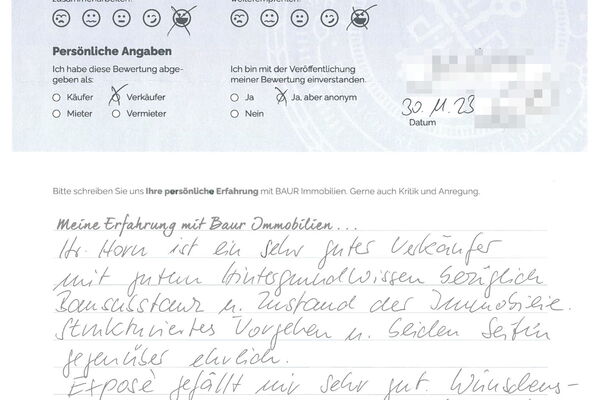 zusammenarbeiten.
weiterempfehlen.
Persönliche Angaben
Ich habe diese Bewertung abge-
geben als:
Käufer
Verkäufer
Mieter
Vermieter
Ich bin mit der Veröffentlichung
meiner Bewertung einverstanden.
Ja
Ja, aber anonym
Nein
30.11.23
Datum
Bitte schreiben Sie uns Ihre persönliche Erfahrung mit BAUR Immobilien. Gerne auch Kritik und Anregung.
Meine Erfahrung mit Baur Immobilien...
Hr. Horn ist ein sehr guter Verkäufer
mit gutem Hintergrundwissen bezüglich
Bausubstanz u. Zustand der Immobilie.
Strukturiertes Vorgehen u. beiden Seiten
gegenüber ehrlich.
Exposè gefällt mir sehr gut. Wünschens-